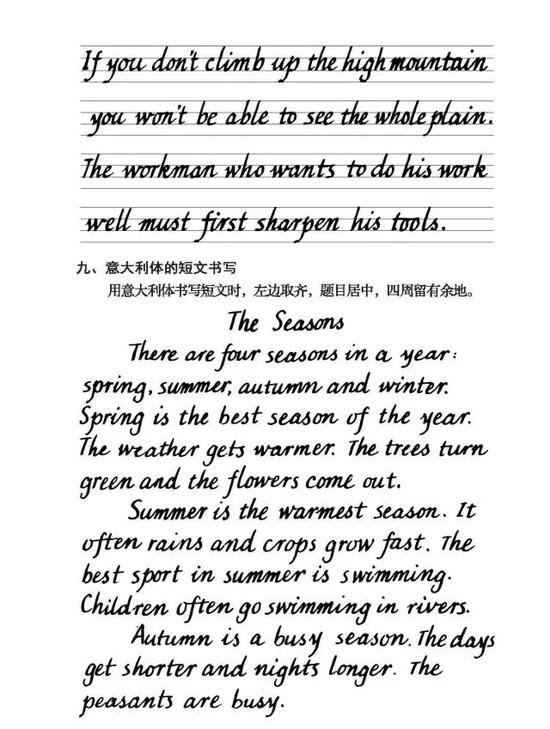 If you don't climb up the high mountain
you won't be able to see the whole plain.
The workman who wants to do his work
well must first sharpen his tools.
九、意大利体的短文书写
用意大利体书写短文时，左边取齐，题目居中，四周留有余地。
The Seasons
There are four seasons in a year:
spring, summer, autumn and winter.
Spring is the best season of the year.
The weather gets warmer. The trees turn
green and the flowers come out.
Summer is the warmest season. It
often rains and crops grow fast. The
best sport in summer is swimming.
Children often go swimming in rivers.
Autumn is a busy season. The days
get shorter and nights longer. The
peasants are busy.